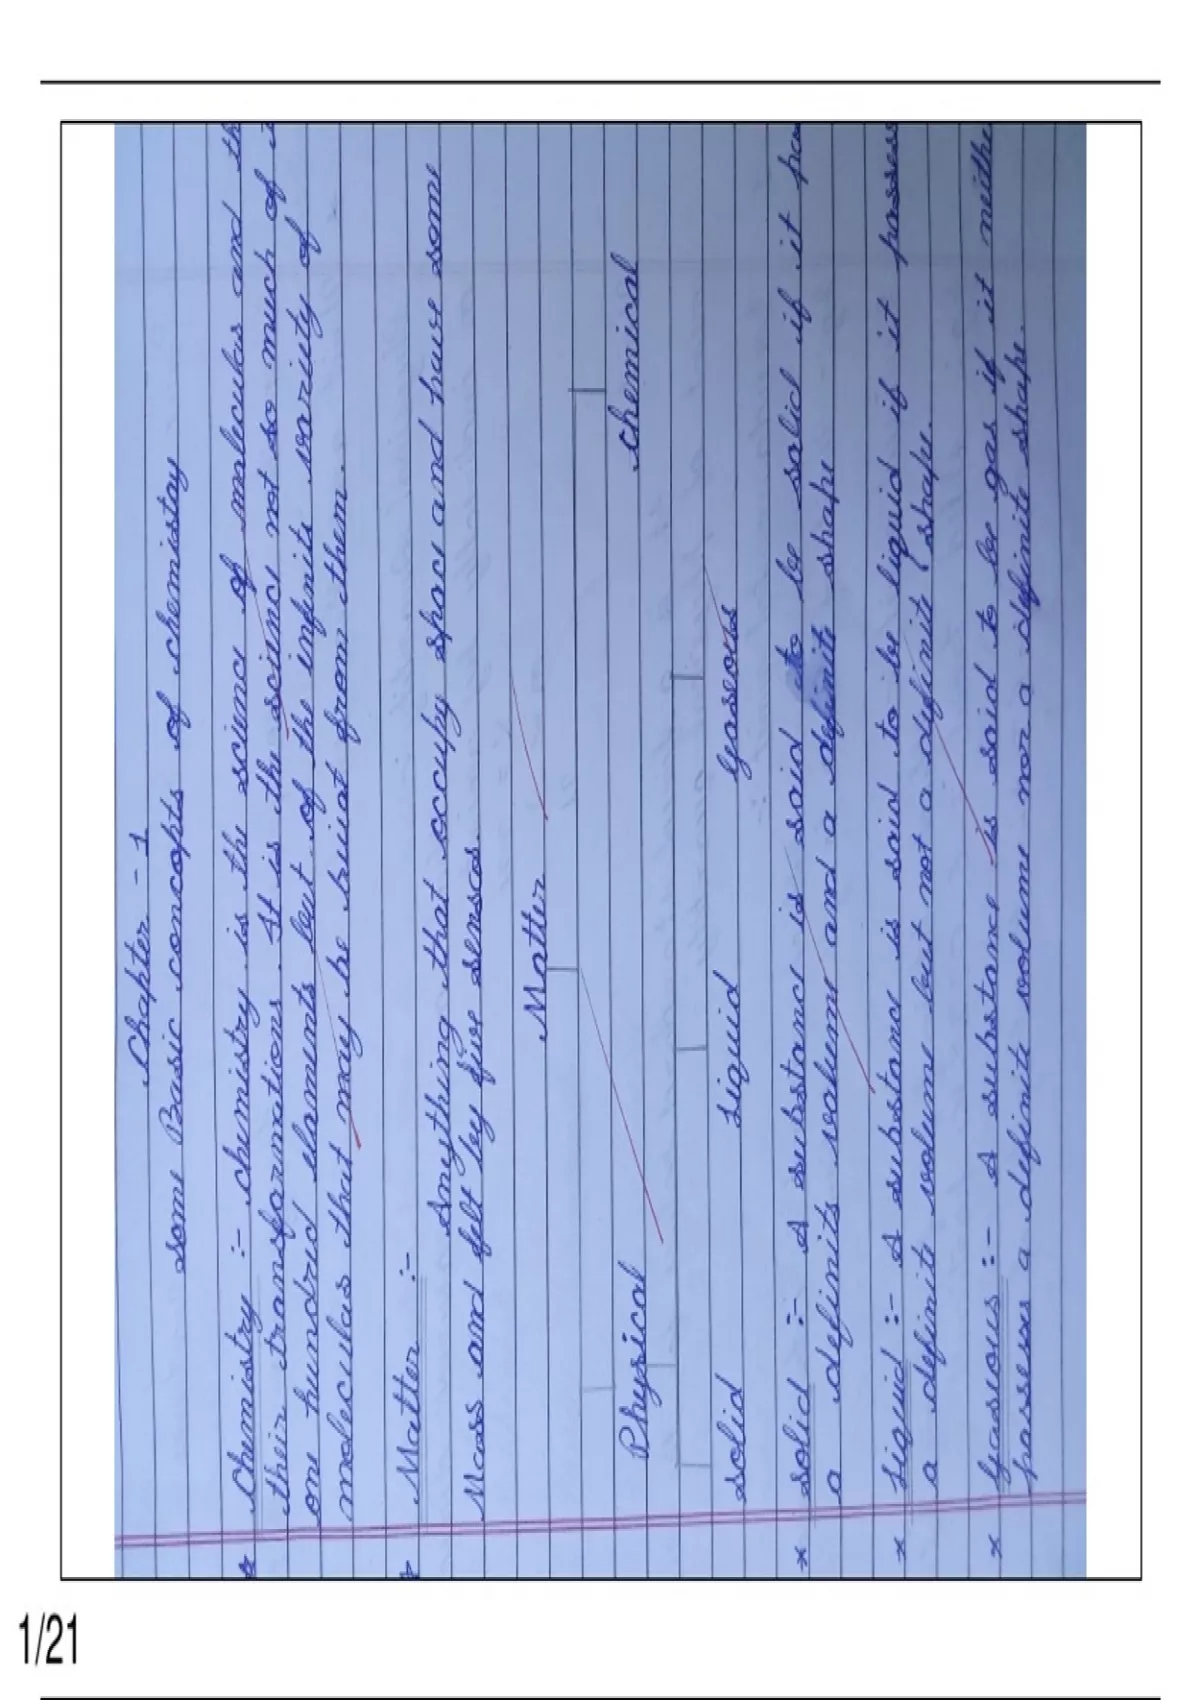 Chapter - 1
some Basic concepts of chemistry
chemistry :- chemistry is the science of molecules and
their transformations. It is the science not so much of
one hundred elements but of the infinite variety of
molecules that may be built from them.
Matter :-
Anything that occupy space and have some
Mass and felt by five senses.
Matter
Physical chemical
solid liquid gaseous
* solid :- A substance is said to be solid if it
a definite volume and a definite shape
* liquid :- A substance is said to be liquid if it possess
a definite volume but not a definite shape.
* Gaseous :- A substance is said to be gas if it
possess a definite volume nor a definite shape.
1/21